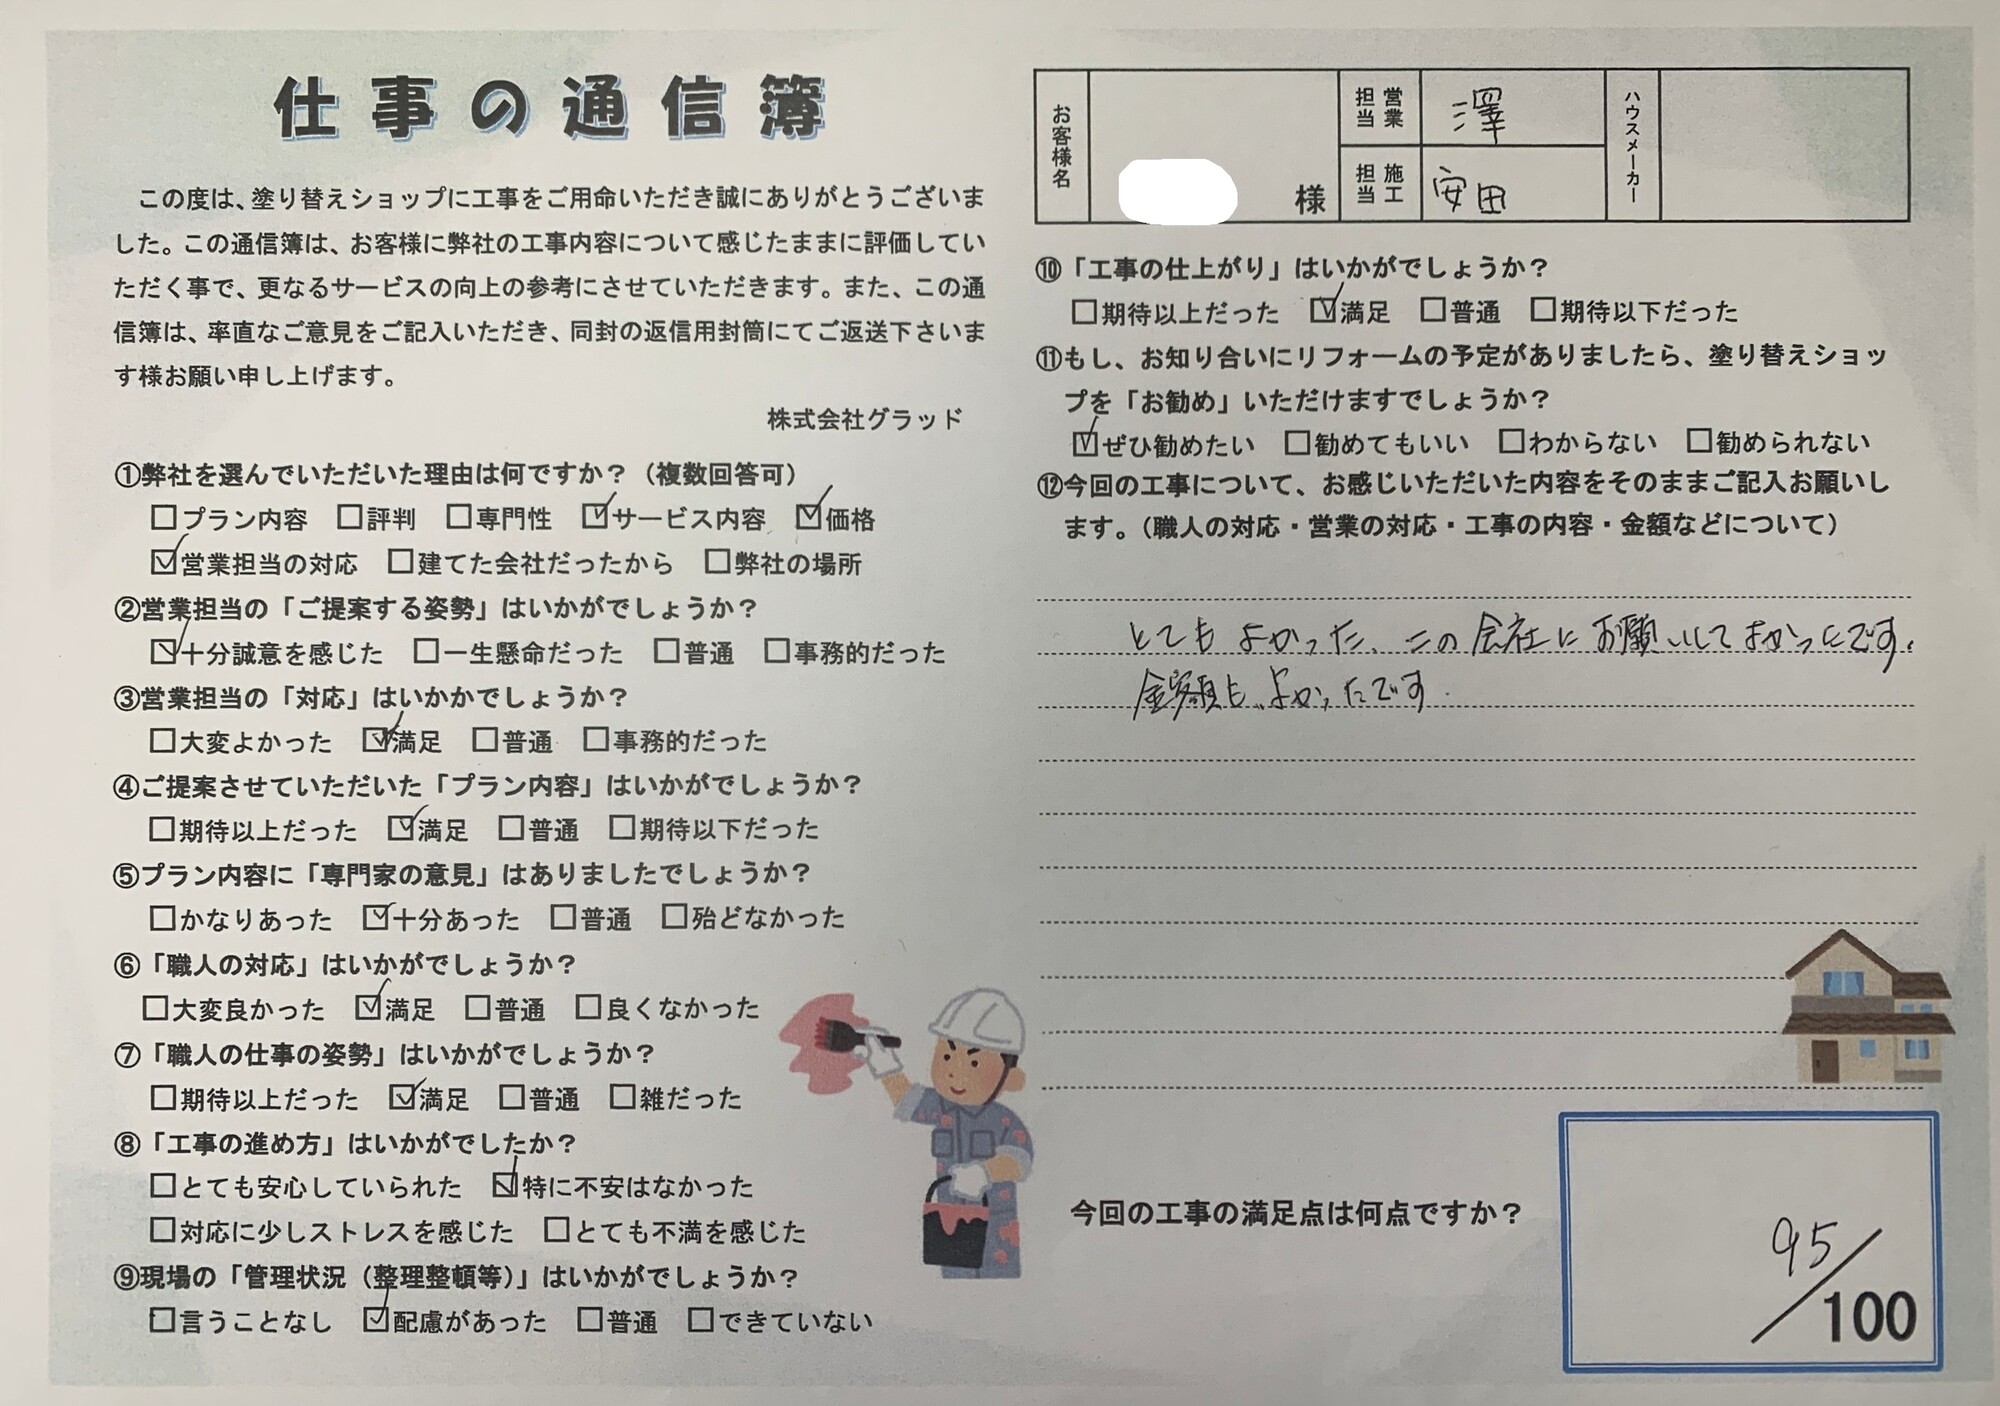 仕事の通信簿
この度は、塗り替えショップに工事をご用命いただき誠にありがとうございま
した。この通信簿は、お客様に弊社の工事内容について感じたままに評価してい
ただく事で、更なるサービスの向上の参考にさせていただきます。また、この通
信簿は、率直なご意見をご記入いただき、同封の返信用封筒にてご返送下さいま
す様お願い申し上げます。
株式会社グラッド
①弊社を選んでいただいた理由は何ですか？（複数回答可）
□プラン内容 □評判 □専門性 ☑サービス内容 ☑価格
☑営業担当の対応 □建てた会社だったから □弊社の場所
②営業担当の「ご提案する姿勢」はいかがでしょうか？
☑十分誠意を感じた □一生懸命だった □普通 □事務的だった
③営業担当の「対応」はいかかでしょうか？
□大変よかった ☑満足 □普通 □事務的だった
④ご提案させていただいた「プラン内容」はいかがでしょうか？
□期待以上だった ☑満足 □普通 □期待以下だった
⑤プラン内容に「専門家の意見」はありましたでしょうか？
□かなりあった ☑十分あった □普通 □殆どなかった
⑥「職人の対応」はいかがでしょうか？
□大変良かった ☑満足 □普通 □良くなかった
⑦「職人の仕事の姿勢」はいかがでしょうか？
□期待以上だった ☑満足 □普通 □雑だった
⑧「工事の進め方」はいかがでしたか？
□とても安心していられた ☑特に不安はなかった
□対応に少しストレスを感じた □とても不満を感じた
⑨現場の「管理状況（整理整頓等）」はいかがでしょうか？
□言うことなし ☑配慮があった □普通 □できていない
お客様名 様 営業担当 澤 ハウスメーカー
施工担当 安田
⑩「工事の仕上がり」はいかがでしょうか？
□期待以上だった ☑満足 □普通 □期待以下だった
⑪もし、お知り合いにリフォームの予定がありましたら、塗り替えショッ
プを「お勧め」いただけますでしょうか？
☑ぜひ勧めたい □勧めてもいい □わからない □勧められない
⑫今回の工事について、お感じいただいた内容をそのままご記入お願いし
ます。（職人の対応・営業の対応・工事の内容・金額などについて）
とてもよかった、この会社にお願いしてよかったです。
金額もよかったです.
今回の工事の満足点は何点ですか？
95/100